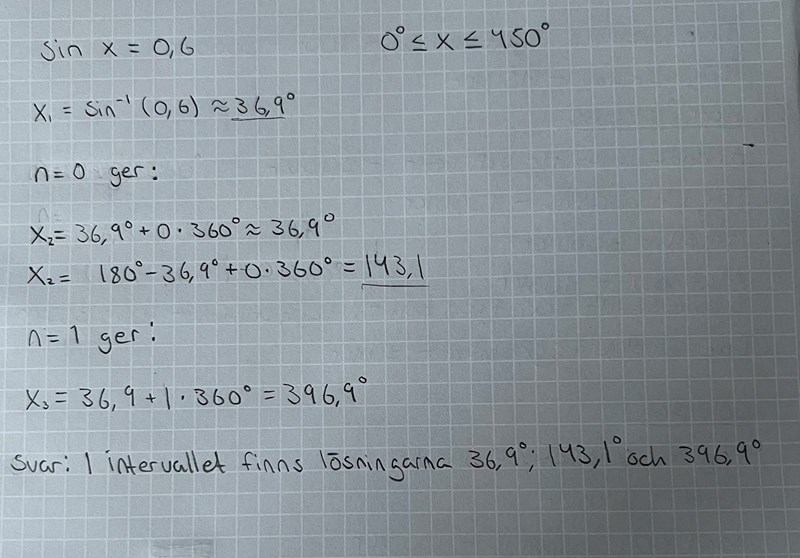 sin x = 0,6 0° ≤ x ≤ 450°
x₁ = sin⁻¹ (0,6) ≈ 36,9°
n = 0 ger:
x₂ = 36,9° + 0 · 360° ≈ 36,9°
x₂ = 180° - 36,9° + 0 · 360° = 143,1
n = 1 ger:
x₃ = 36,9 + 1 · 360° = 396,9°
Svar: I intervallet finns lösningarna 36,9°; 143,1° och 396,9°